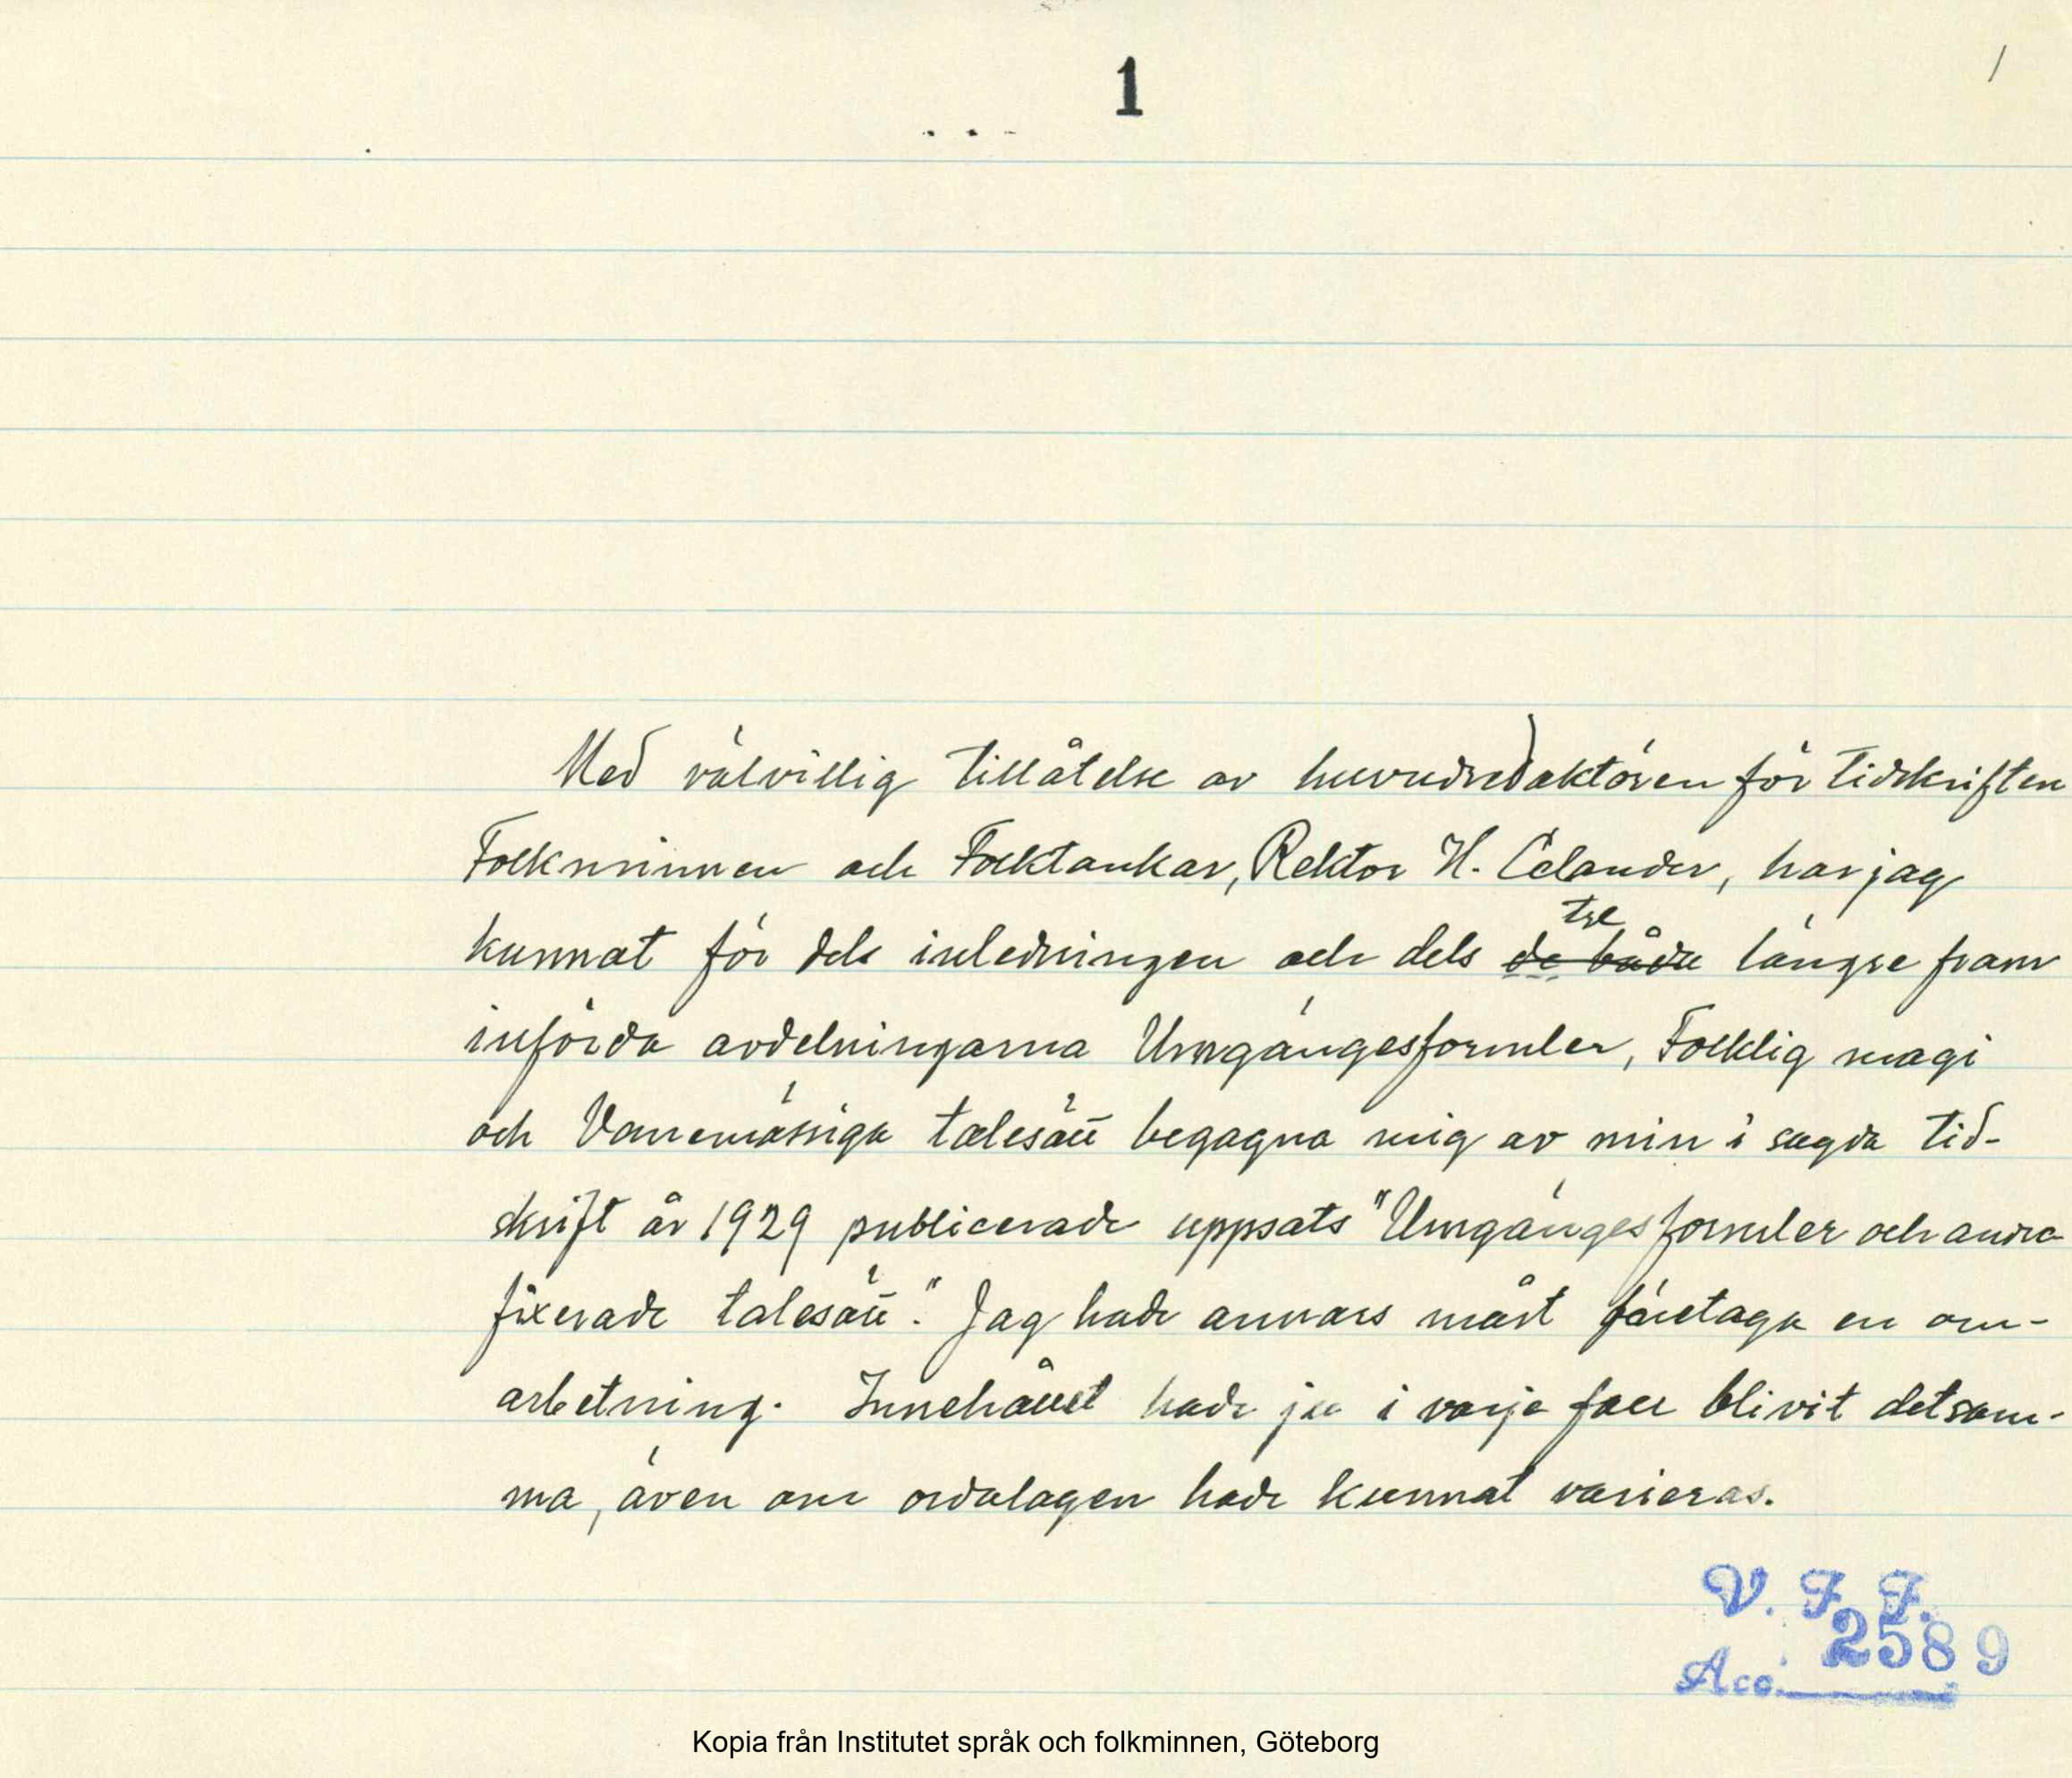 1
/
Med välvillig tillåtelse av huvudredaktören för tidskriften
Folkminnen och Folktankar, Rektor H. Celander, har jag
tre
kunnat för dels inledningen och dels de båda längre fram
införda avdelningarna Umgängesformler, Folklig magi
och Vanemässiga talesätt begagna mig av min i sagda tid-
skrift år 1929 publicerade uppsats "Umgängesformler och andra
fixerade talesätt". Jag hade annars måst företaga en om-
arbetning. Innehållet hade ju i varje fall blivit detsam-
ma, även om ordalagen hade kunnat varieras.
V. F. F.
2589
Acc.
Kopia från Institutet språk och folkminnen, Göteborg